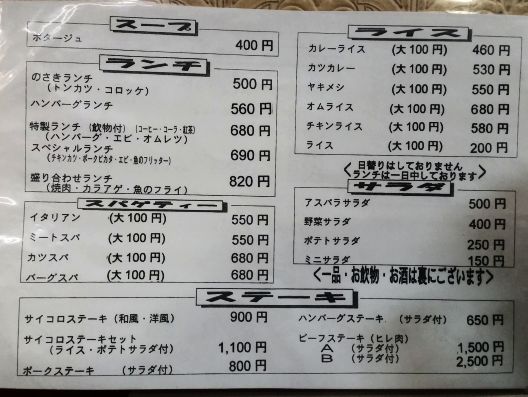 スープ
ポタージュ 400円
ランチ
のさきランチ 500円
(トンカツ・コロッケ)
ハンバーグランチ 560円
特製ランチ (飲物付) (コーヒー・コーラ・紅茶) 680円
(ハンバーグ・エビ・オムレツ)
スペシャルランチ 690円
(チキンカツ・ポークピカタ・エビ・魚のフリッター)
盛り合わせランチ 820円
(焼肉・カラアゲ・魚のフライ)
スパゲティー
イタリアン (大100円) 550円
ミートスパ (大100円) 550円
カツスパ (大100円) 680円
バーグスパ (大100円) 680円
ライス
カレーライス (大100円) 460円
カツカレー (大100円) 530円
ヤキメシ (大100円) 550円
オムライス (大100円) 680円
チキンライス (大100円) 580円
ライス (大100円) 200円
<日替りはしておりません
ランチは一日中しております>
サラダ
アスパラサラダ 500円
野菜サラダ 400円
ポテトサラダ 250円
ミニサラダ 150円
<一品・お飲物・お酒は裏にございます>
ステーキ
サイコロステーキ(和風・洋風) 900円
サイコロステーキセット
(ライス・ポテトサラダ付) 1,100円
ポークステーキ (サラダ付) 800円
ハンバーグステーキ (サラダ付) 650円
ビーフステーキ(ヒレ肉)
A (サラダ付) 1,500円
B (サラダ付) 2,500円